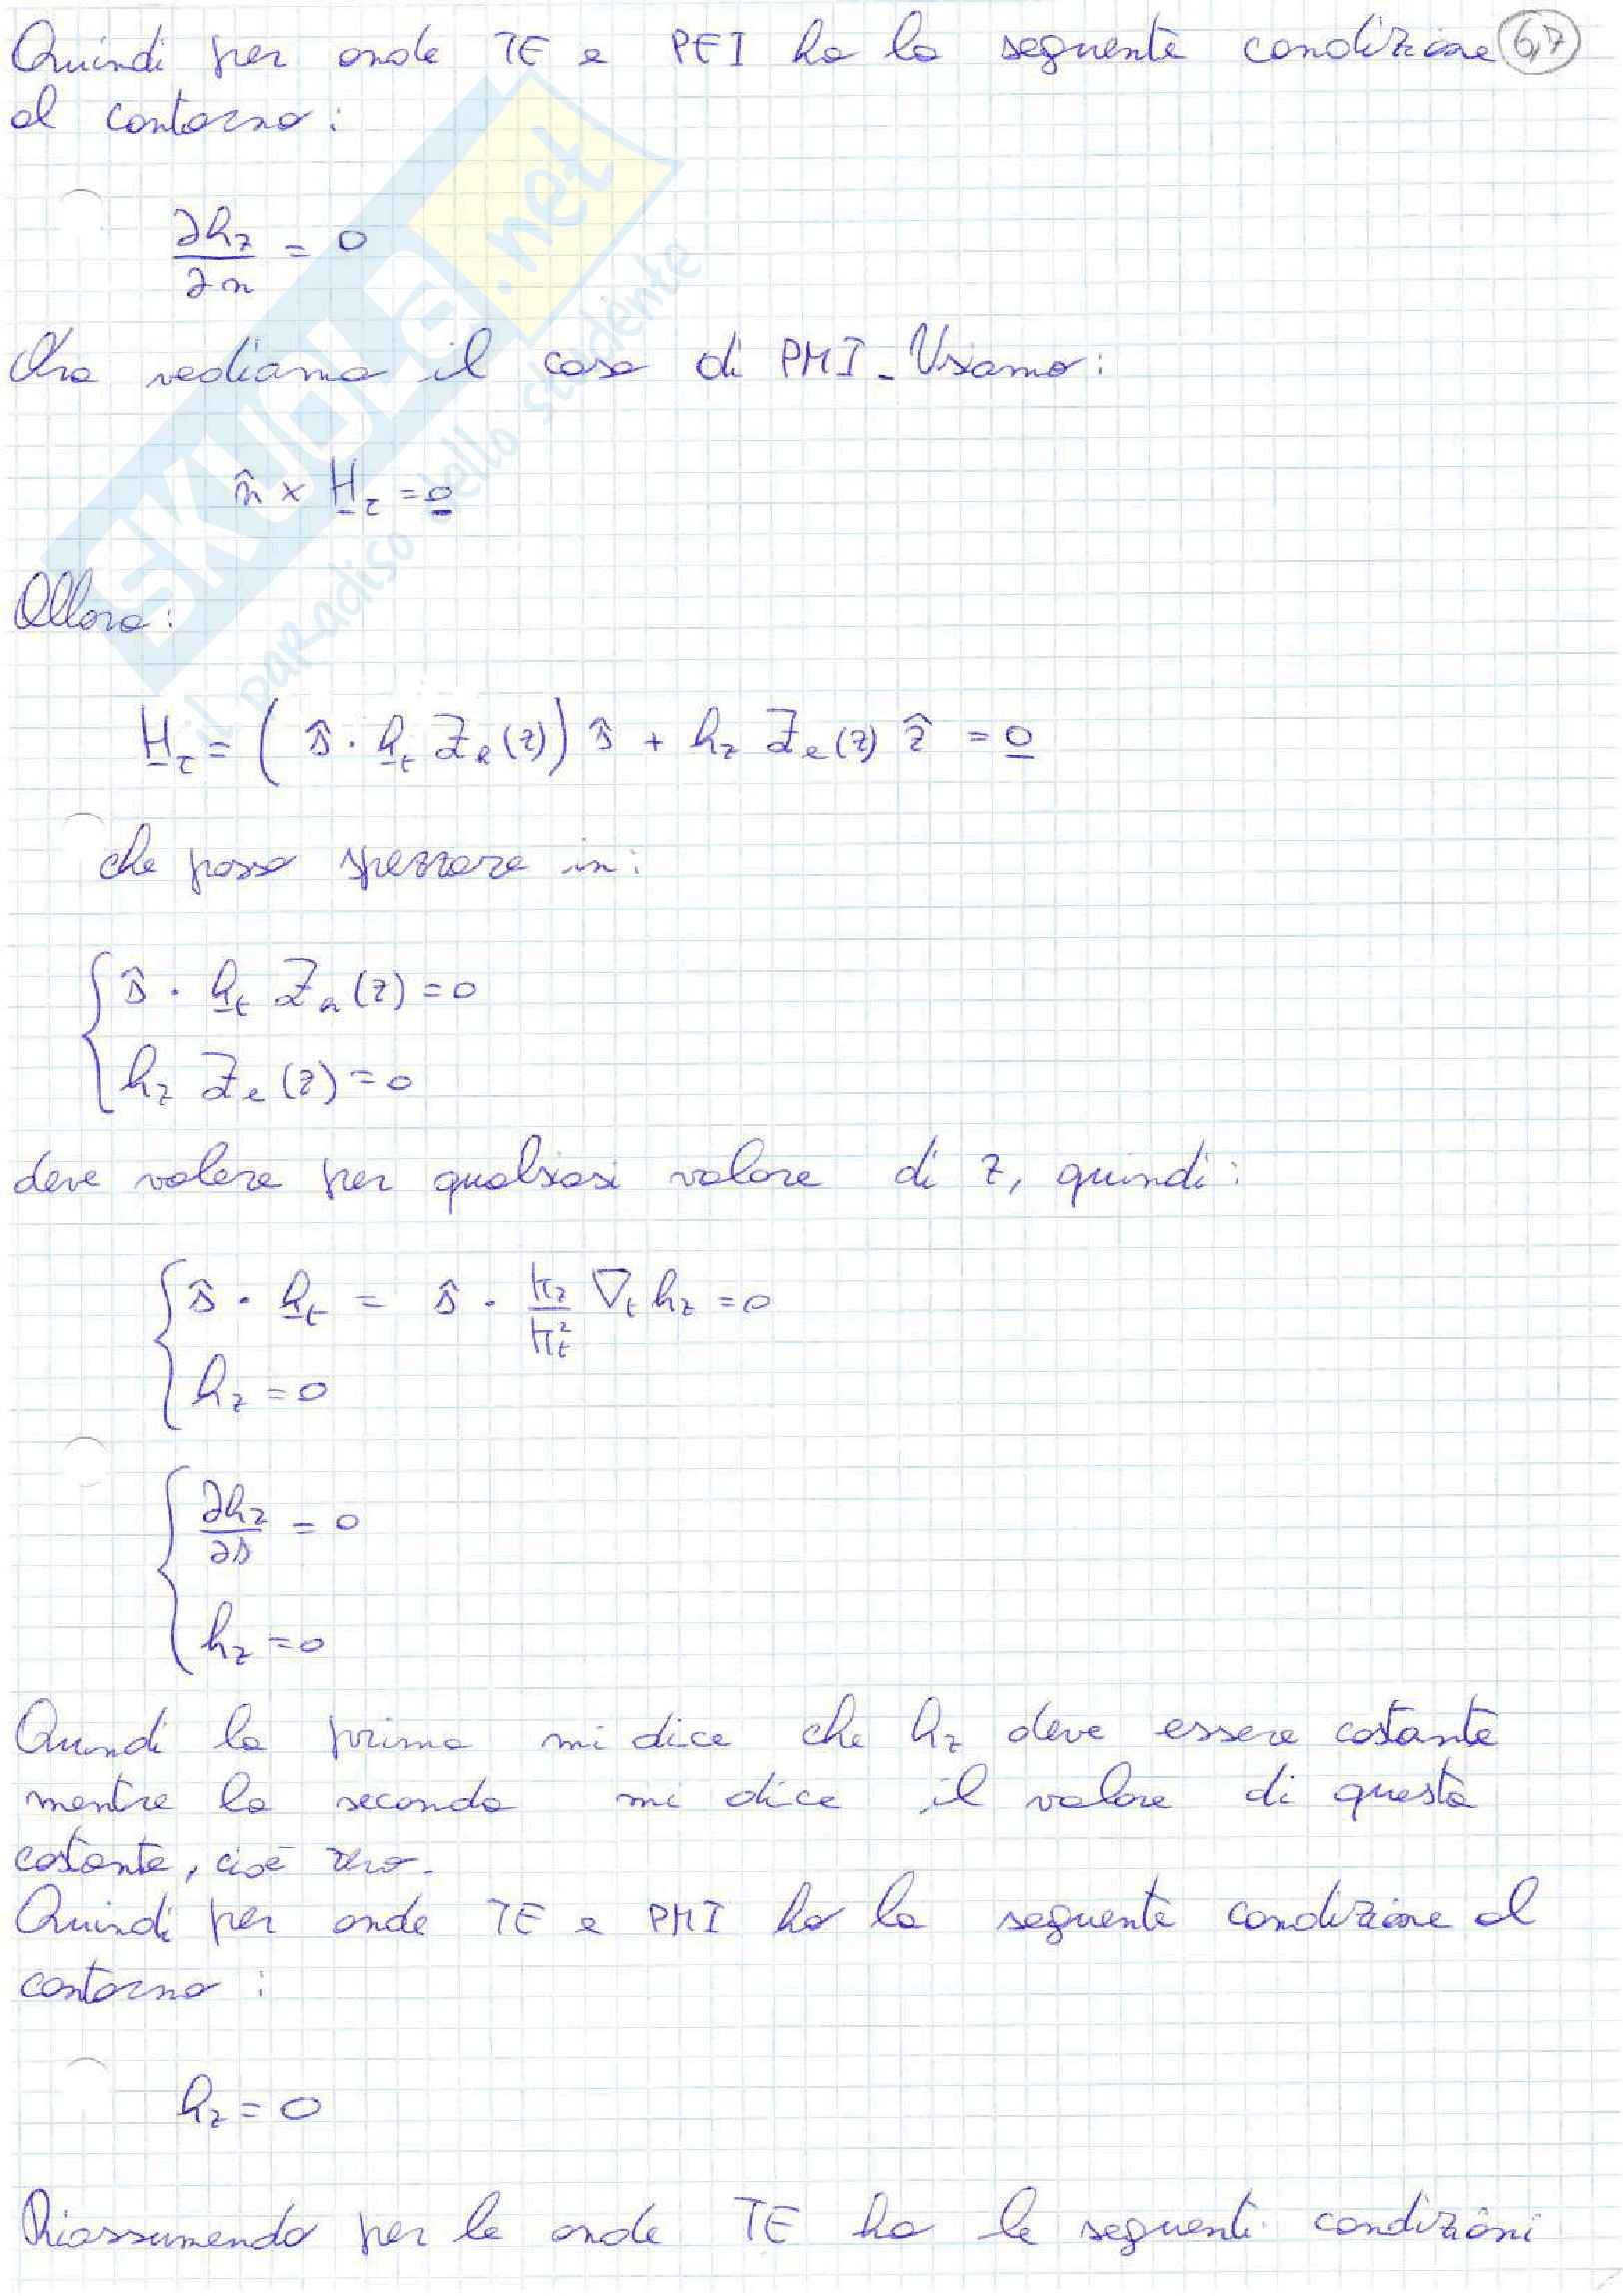 Quindi per onde TE e PEI ho la seguente condizione 6,7
al contorno:
∂h_z/∂n = 0
Ora vediamo il caso di PMI. Usiamo:
n̂ × H_τ = 0
Allora:
H_τ = ( ŝ · h_t Z_h(z) ) ŝ + h_z Z_e(z) ẑ = 0
che posso spezzare in:
{ ŝ · h_t Z_h(z) = 0
h_z Z_e(z) = 0
deve valere per qualsiasi valore di z, quindi:
{ ŝ · h_t = ŝ · k_z/k_t² ∇_t h_z = 0
h_z = 0
{ ∂h_z/∂s = 0
h_z = 0
Quindi la prima mi dice che h_z deve essere costante
mentre la seconda mi dice il valore di questa
costante, cioè zero.
Quindi per onde TE e PMI ho la seguente condizione al
contorno:
h_z = 0
Riassumendo per le onde TE ho le seguenti condizioni
SKUOLA.net
il paradiso dello studente